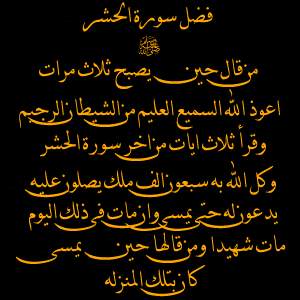 فضل سورة الحشر
ﷺ
من قال حين يصبح ثلاث مرات
اعوذ الله السميع العليم من الشيطان الرجيم
وقرأ ثلاث ايات من اخر سورة الحشر
وكل الله به سبعون الف ملك يصلون عليه
يدعون له حتى يمسى وان مات فى ذلك اليوم
مات شهيدا ومن قالها حين يمسى
كان بتلك المنزله